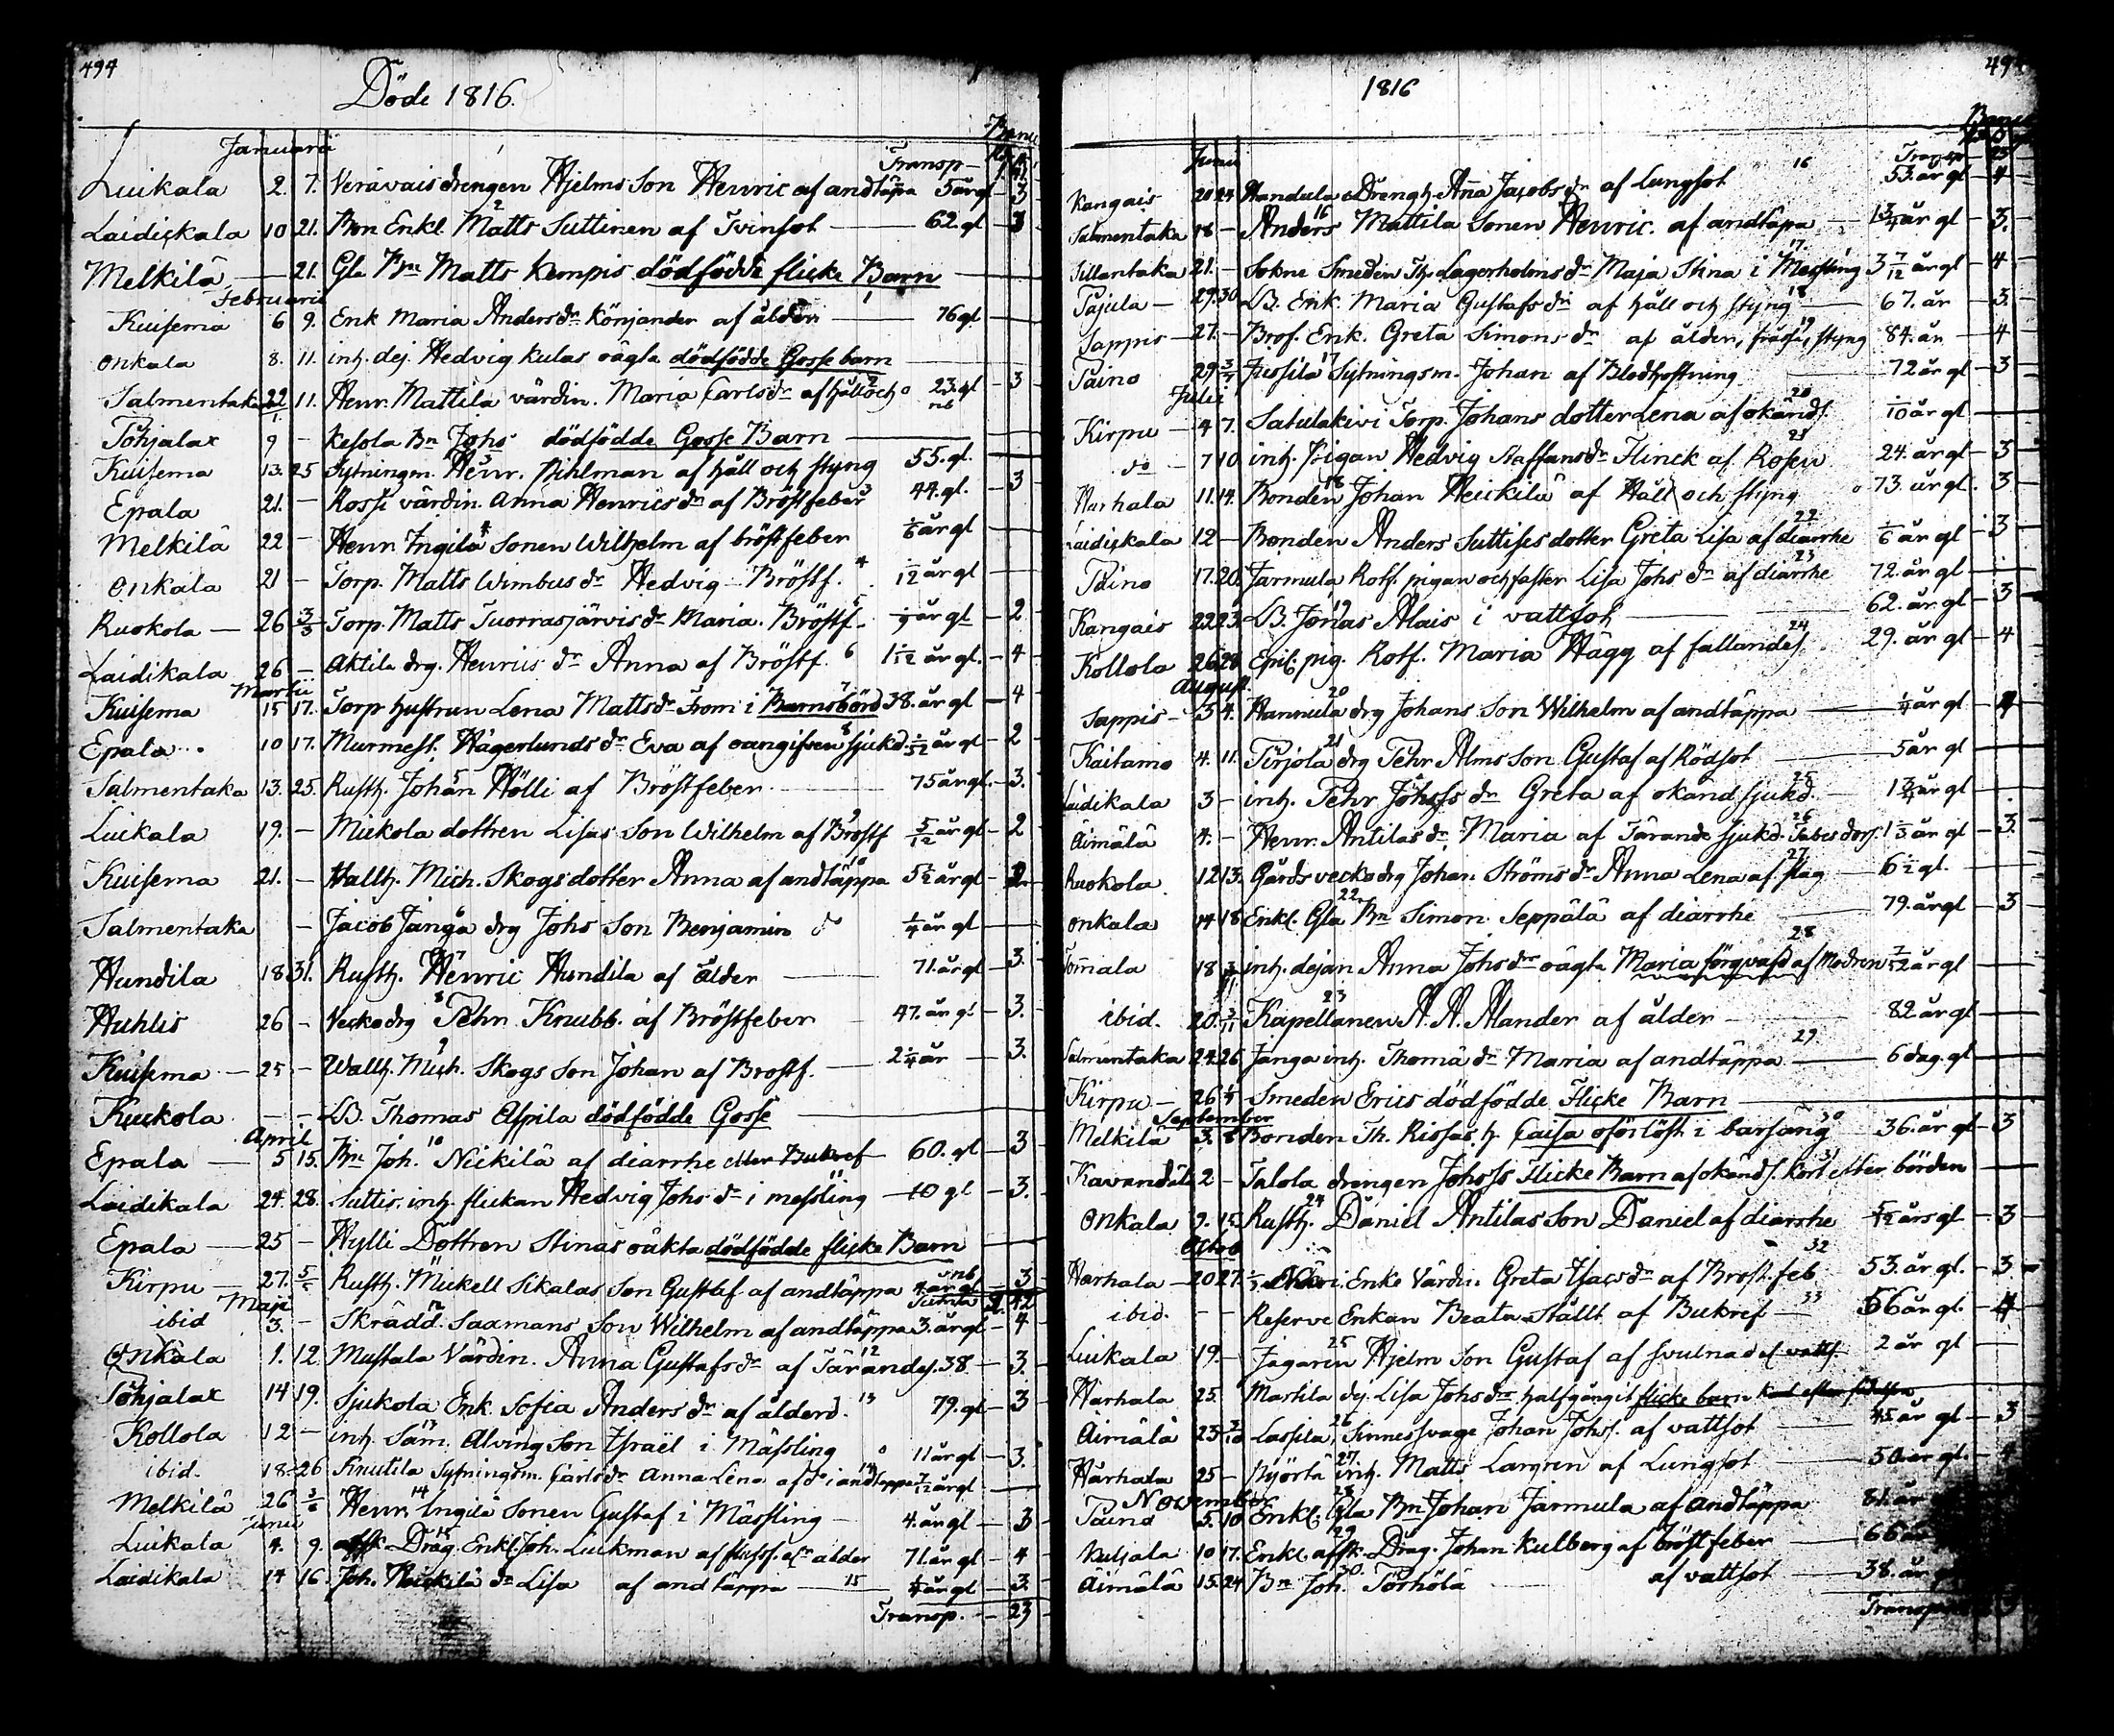 494
Döde 1816.
Januarii
Transp
Luikala 2. 7. Veråvais drengen Hjelms Son Henric af andtäppa 5 år gl 3
Laidickala 10 21. Bon Enkl. Matts Suttinen af Tvinsot 62. gl 3
Melkilä 21. Gla Bn Matts Kempis dödfödde flicke Barn
Februarii
Kuisema 6 9. Enk Maria Anders dr Könjander af ålder 76 gl
Onkala 8. 11. inh. dej. Hedvig Kulas oägta dödfödde Gosse barn
Salmentaka 22/1 11. Henr. Mattila värdin. Maria Carlsdr af håll och 23. gl 3
Pohjalax 9 - Kesola Bn Johs dödfödde Gosse Barn
Kuisema 13. 25 Sytningsm. Henr. Pihlman af håll och styng 55. gl. 3
Epala 21. - Rossi värdin. Anna Henricsdr af Bröstfeber 44. gl.
Melkilä 22 - Henr. Ingilä Sonen Wilhelm af bröstfeber 1/6 år gl
Onkala 21 - Torp. Matts Wimbus dr Hedvig Bröstf. 1/12 år gl
Ruokola 26 3/3 Torp. Matts Tuorrasjärvis dr Maria. Bröstf. år gl 2
Laidikala 26 - Aktila drg. Henrics dr Anna af Bröstf. 1 1/12 år gl. 4
Martii
Kuisema 15 17. Torp hustrun Lena Mattsdr From i Barnsbörd 38. år gl 4
Epala 10 17. Murmest. Hägerlunds dr Eva af oangifven sjukd. år gl 2
Salmentaka 13. 25. Rusth. Johan Hölli af Bröstfeber 75 år gl. 3.
Luikala 19. - Mickola dottren Lisas Son Wilhelm af Bröstf 5/12 år gl 2
Kuisema 21. - Wallh. Mich. Skogs dotter Anna af andtäppa 5 1/2 år gl 2
Salmentaka - Jacob Janga drg Johs Son Benjamin do 1/4 år gl
Hundila 18 31. Rusth. Henric Hundila af ålder 71. år gl 3.
Huhlis 26 - Vecko drg Pehr Knubb. af Bröstfeber 47. år gl 3.
Kuisema 25 - Wallh. Mich. Skogs Son Johan af Bröstf. 2 1/4 år 3.
Kuckola - - LB. Thomas Aspila dödfödde Gosse
April
Epala 5 15. Bn Joh. Nickilä af diarrhe eller Bukref 60. gl 3
Laidikala 24. 28. Suttis. inh. flickan Hedvig Johs dr i messling 10 gl 3.
Epala 25 - Hylli Dottren Stinas oäkta dödfödde flicke Barn
Kirpu 27. 5/5 Rusth. Mickell Sikalas Son Gustaf af andtäppa 4 år gl 3
Maji
ibid 3. - Skrädd. Saxmans Son Wilhelm af andtäppa 3. år gl 4
Onkala 1. 12 Mustala Värdin. Anna Gustafs dr af Tärandes. 38. 3.
Pohjalax 14 19. Sjukola Enk. Sofia Anders dr af ålderd. 79. gl 3
Kollola 12 - inh. Sam. Alving Son Israël i Mässling 11 år gl 3.
ibid. 18. 26 Knutila Sytningsm. Carls dr Anna Lena af do i andtäppa 7/12 år gl
Melkilä 26 3/6 Henr. Ingilä Sonen Gustaf i Mässling 4. år gl 3
Junii
Luikala 4. 9. affsk. Drag. Enkl. Joh. Luckman af fluss. elr ålder 71. år gl 4
Laidikala 14 16 Joh. Heickilä dr Lisa af andtäppa 1/4 år gl 3.
Transp. 23
1816
Junii
Transp 23
Kangais 20 24 Handula Drengh. Anna Jacobs dr af Lungsot 53. år gl 4
Salmentaka 18 - Anders Mattila Sonen Henric. af andtäpa 1 3/4 år gl 3.
Sillantaka 21. - Sokne Smeden Th. Lagerholms dr Maja Stina i Messling 3 7/12 år gl 4
Pajula 29. 30 LB. Enk. Maria Gustafs dr af håll och styng 67. år 3.
Sappis 27. - Brof. Enk. Greta Simons dr af ålder, frossa, styng 84. år 4
Paino 29 3/7 Jussila Sytningsm. Johan af Blodhostning 72 år gl 3
Julii
Kirpu 4 7. Satulakivi Torp. Johans dotter Lena af okänds. 1/10 år gl
do 7 10 inh. Pigan Hedvig Staffans dr Flinck af Rosen 24. år gl 3
Harhala 11. 14. Bonden Johan Heickilä af Håll och styng 73. år gl. 3
Laidickala 12 - Bonden Anders Suttises dotter Greta Lisa af diarrhe 1/6 år gl 3
Paino 17. 20. Jarmula Rotf. pigan och faster Lisa Johs dr af diarrhe 72. år gl
Kangais 22 23. LB. Jonas Alais i vattsot 62. år gl 3
Kollola 26 28 Epil. pig. Rotf. Maria Hägg af fallandes. 29. år gl 4
August.
Sappis 3 4. Hannula drg Johans Son Wilhelm af andtäppa 1/4 år gl
Kaitamo 4. 11. Pirjola drg Pehr Alms Son Gustaf af Rödsot 5 år gl
Laidikala 3 - inh. Pehr Johss dr Greta af okänd sjukd. 1 3/4 år gl
Äimälä 4. - Henr. Antilas dr Maria af Tärande sjukd. Tabes dors. 1 1/3 år gl 3.
Ruokola 12 13. Gårds vecko drg Johan Ströms dr Anna Lena af slag 6 1/2 gl.
Onkala 14 18 Enkl. Gla Bn Simon Seppälä af diarrhe 79. år gl 3
Tomala 18 inh. dejan Anna Johs dr oägta Maria förqvafd af Modren 7/52 år gl
ibid. 20. Kapellanen A. A. Alander af ålder 82 år gl
Salmentaka 24. 26. Janga inh. Thoma dr Maria af andtäppa 6 dag. gl
Kirpu 26 Smeden Erics dödfödde Flicke Barn
September
Melkilä 3. 8 Bonden Th. Rissas h. Caisa oförlöst i barsäng 36. år gl 3
2 - Talola drengen Johss Flicke Barn af okänds. kort efter börden
Onkala 9. 15. Rusth. Daniel Antilas Son Daniel af diarrhe års gl 3
Octob
Harhala 20 27. Enke Värdin. Greta Isacs dr af Bröst. feb 53. år gl. 3.
ibid. - - Reserve Enkan Beata Stållt af Bukref 56 år gl. 4
Luikala 19. - Jagaren Hjelm Son Gustaf af svulnad 2 år gl
Harhala 25. Martila dej. Lisa Johs dr halfgånget flicke barn
Äimälä 23 Lassila, Sinnessvage Johan Johss. af vattsot 45 år gl 3
Harhala 25 - Björlä inh. Matts Largren af Lungsot 50 år gl. 4
November
Paino 5. 10 Enkl. Gla Bn Johan Jarmula af andtäppa 81. år
10 17. Enkl. affsk. Drag. Johan Kulberg af bröstfeber 66 år
Äimälä 15. 24 Bn Joh. Törhölä af vattsot 38. år
Transport